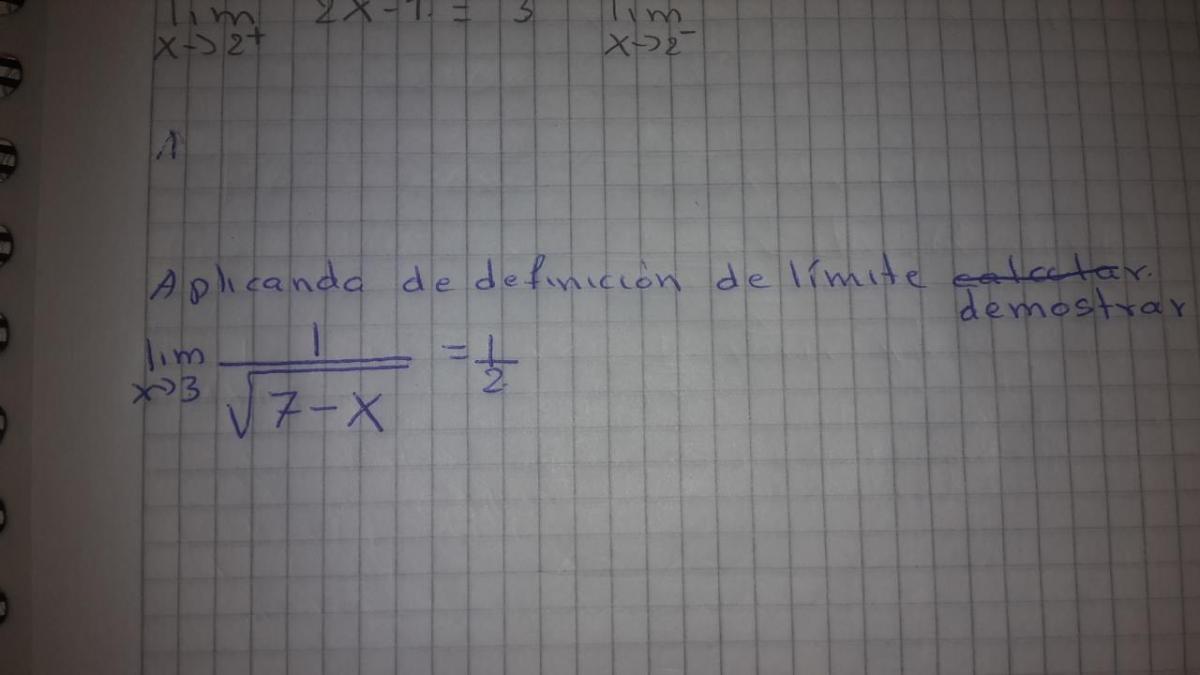 lim 2x-1 = 3 lim
x→2+ x→2-
1
Aplicanda de definición de límite calcular.
demostrar
lim 1/√7-x = 1/2
x→3